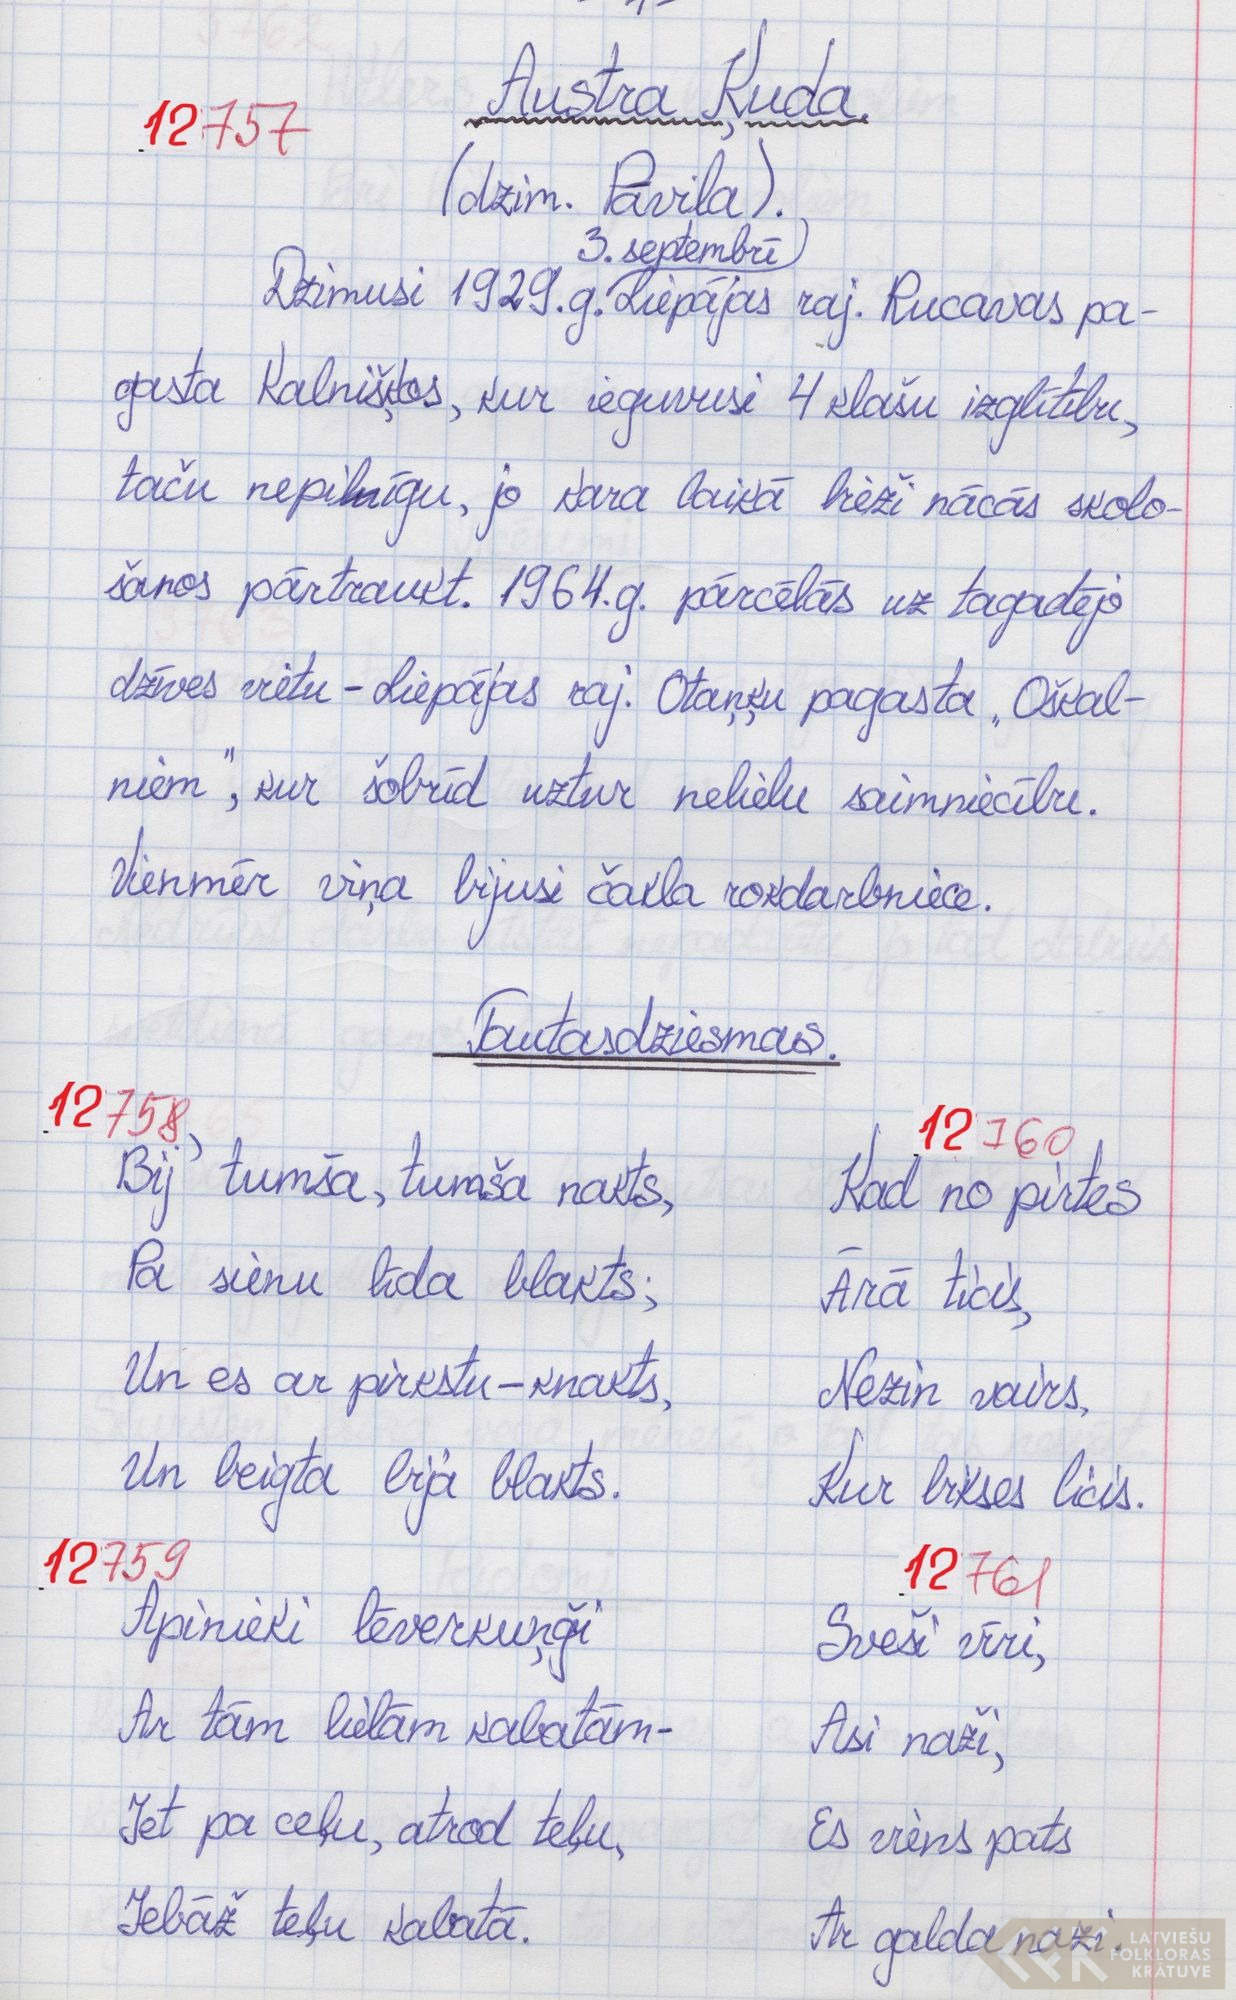 Austra Ķuda.
12757
(dzim. Pāvila).
3. septembrī
Dzimusi 1929.g. Liepājas raj. Rucavas pa-
gasta Kalnišķos, kur ieguvusi 4 klašu izglītību,
taču nepilnīgu, jo kara laikā bieži nācās skolo-
šanos pārtraukt. 1964.g. pārcēlās uz tagadējo
dzīves vietu - Liepājas raj. Otaņķu pagasta „Oškal-
niem", kur šobrīd uztur nelielu saimniecību.
Vienmēr viņa bijusi čakla rokdarbniece.
Tautasdziesmas.
12758
Bij' tumša, tumša nakts,
Pa sienu līda blakts;
Un es ar pirkstu - knakts,
Un beigta bija blakts.
12759
Apinieki tēverkuņģi
Ar tām lielām kabatām-
Iet pa ceļu, atrod teļu,
Iebāž teļu kabatā.
12760
Kad no pirtes
Ārā ticis,
Nezin vairs,
Kur bikses licis.
12761
Sveši vīri,
Asi naži,
Es viens pats
Ar galda nazi.
LATVIEŠU
FOLKLORAS
KRĀTUVE